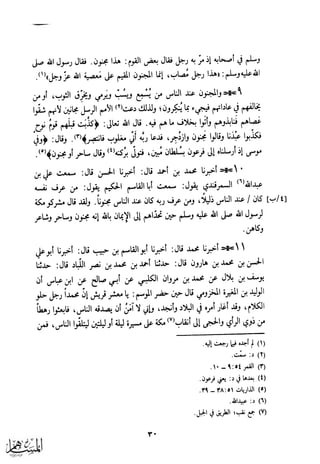 وسلم في أصحابه إذ مرّ به رجل فقال بعض القوم: هذا مجنون. فقال رسول الله صلى
الله عليه وسلم: «هذا رجل مُصاب، إنما المجنون المقيم على مَعصية الله عزّ وجل»(١).
٩ والمجنون عند الناس من يُسمِع ويسُبّ ويَرمي ويُخرّق الثوب، أو من
يخالفهم في عاداتهم فيجيء بما يُنكرون؛ ولذلك دعت(٢) الأمم الرسل مجانين لأنهم شقّوا
عصاهم فنابذوهم وأتوا بخلاف ما هم فيه. قال الله تعالى: ﴿كذّبت قبلهم قوم نوح
فكذّبوا عبدنا وقالوا مجنون وازدُجر، فدعا ربه أني مغلوب فانتصر﴾(٣). وقال: ﴿وفي
موسى إذ أرسلناه إلى فرعون بسلطان مُبين، فتولّى بركنه(٤) وقال ساحر أو مجنون﴾(٥).
١٠ أخبرنا محمد بن أحمد قال: أخبرنا الحسن قال: سمعت علي بن
عبدالله(٦) السمرقندي يقول: سمعت أبا القاسم الحكيم يقول: من عرف نفسه
[٤/ب] كان / عند الناس ذليلاً، ومن عرف ربه كان عند الناس مجنوناً. ولقد قال مشركو مكة
لرسول الله صلى الله عليه وسلم حين تحدّاهم إلى الإيمان بالله إنه مجنون وساحر وشاعر
وكاهن.
١١ أخبرنا محمد قال: أخبرنا أبو القاسم بن حبيب قال: أخبرنا أبو علي
الحسن بن محمد بن هارون قال: حدثنا أحمد بن محمد بن نصر اللبّاد قال: حدثنا
يوسف بن بلال عن محمد بن مروان الكلبي عن أبي صالح عن ابن عباس أن
الوليد بن المغيرة المخزومي قال حين حضر الموسم: يا معشر قريش إنّ محمداً رجل حلو
الكلام، وقد أغار أمره في البلاد وأنجد، وإني لا آمَنُ أن يصدقه الناس، فابعثوا رهطاً
من ذوي الرأي والحجى إلى أنقاب(٧) مكة على مسيرة ليلة أو ليلتين ليتلقّوا الناس، فمن
(١) لم أجده فيما رجعت إليه.
(٢) د: سمّت.
(٣) القمر ٥٤: ٩ ــ ١٠.
(٤) بعدها في د: يعني فرعون.
(٥) الذاريات ٥١: ٣٨ ــ ٣٩.
(٦) د: عبيدالله.
(٧) جمع نقب: الطريق في الجبل.
٣٠